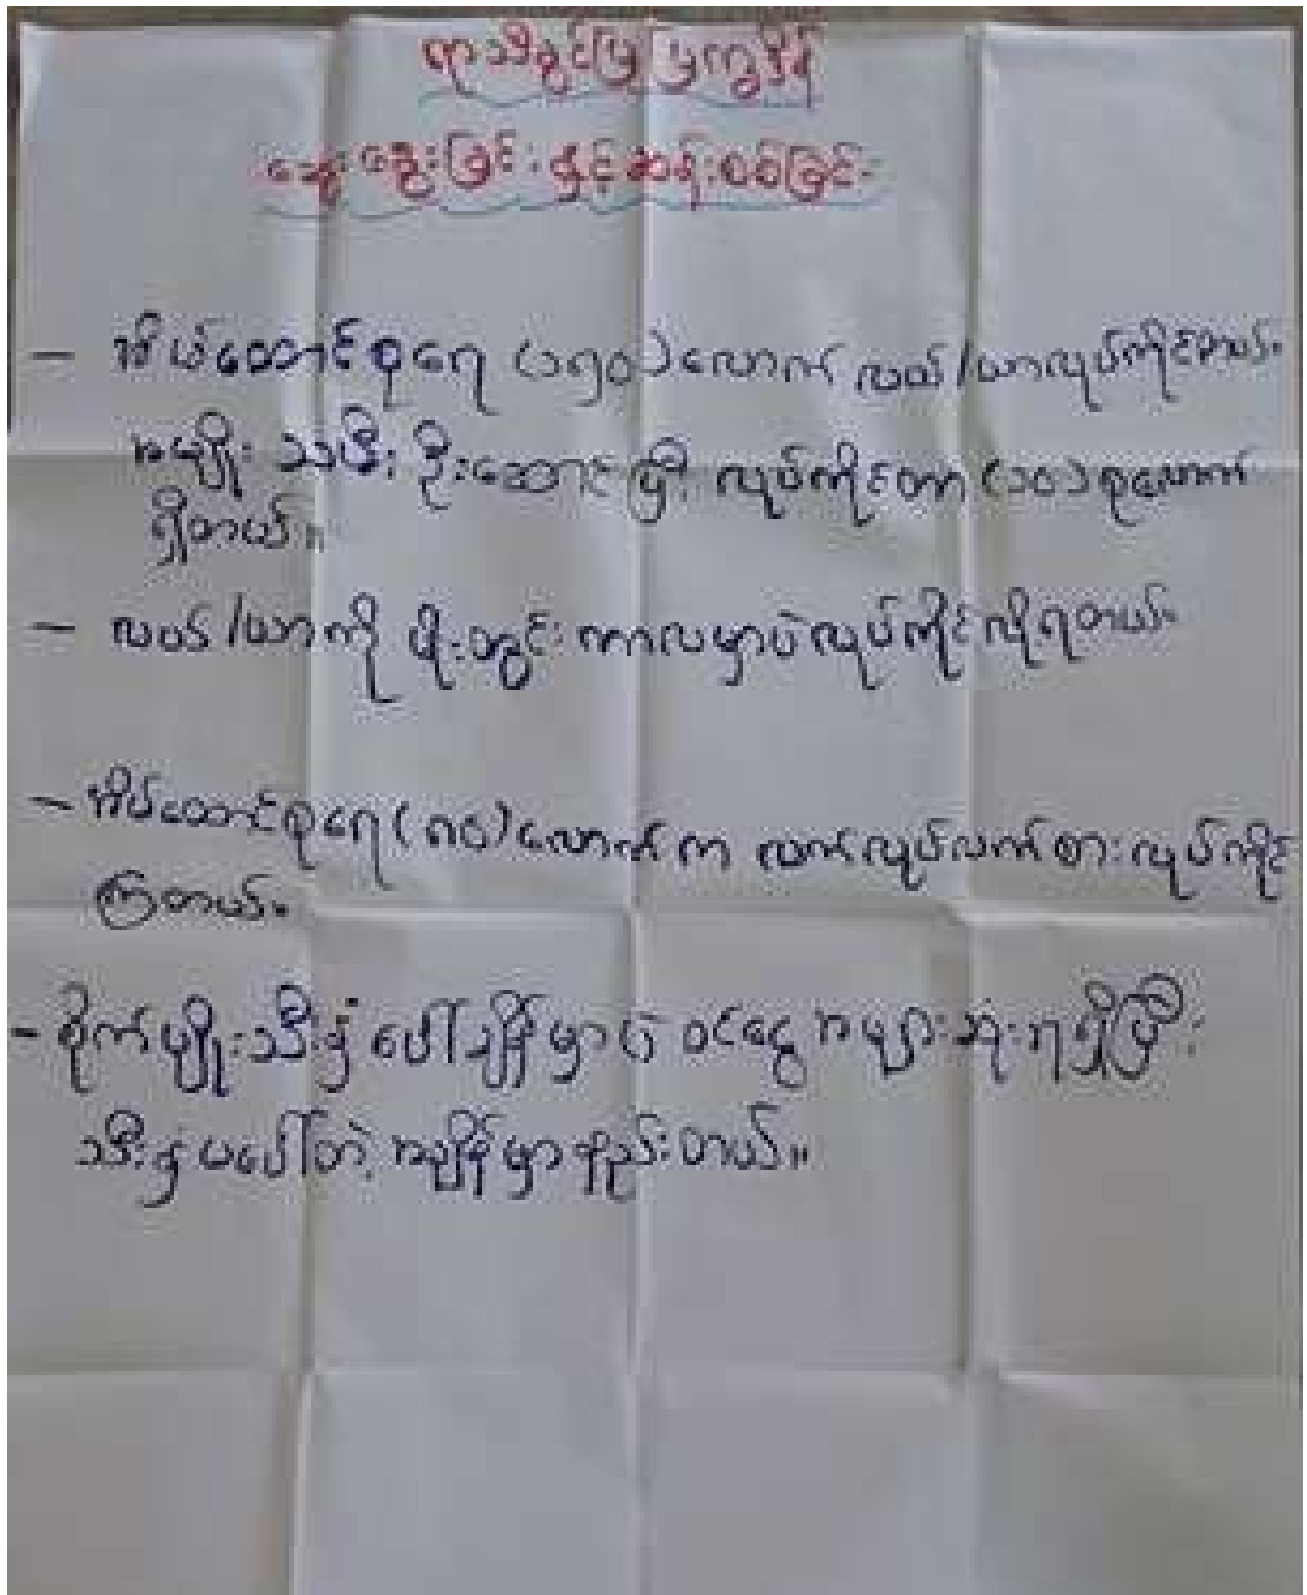 ရာသီခွင်ပြ ပြက္ခဒိန်
ဆွေးနွေးခြင်း နှင့် ဆန်းစစ်ခြင်း
– အိမ်ထောင်စုရေ (၁၅၀)လောက် လယ်/ယာလုပ်ကိုင်တယ်။
အမျိုးသမီး ဦးဆောင်ပြီး လုပ်ကိုင်တာ (၁၀)စုလောက်
ရှိတယ်။
– လယ်/ယာကို မိုးတွင်းကာလမှာပဲလုပ်ကိုင်လို့ရတယ်။
– အိမ်ထောင်စုရေ(၈၀)လောက်က လက်လုပ်လက်စားလုပ်ကိုင်
ကြတယ်။
– စိုက်မျိုးသီးနှံ ပေါ်ချိန်မှာပဲ ဝင်ငွေအများဆုံးရရှိပြီး
သီးနှံမပေါ်တဲ့ အချိန်မှာနည်းတယ်။